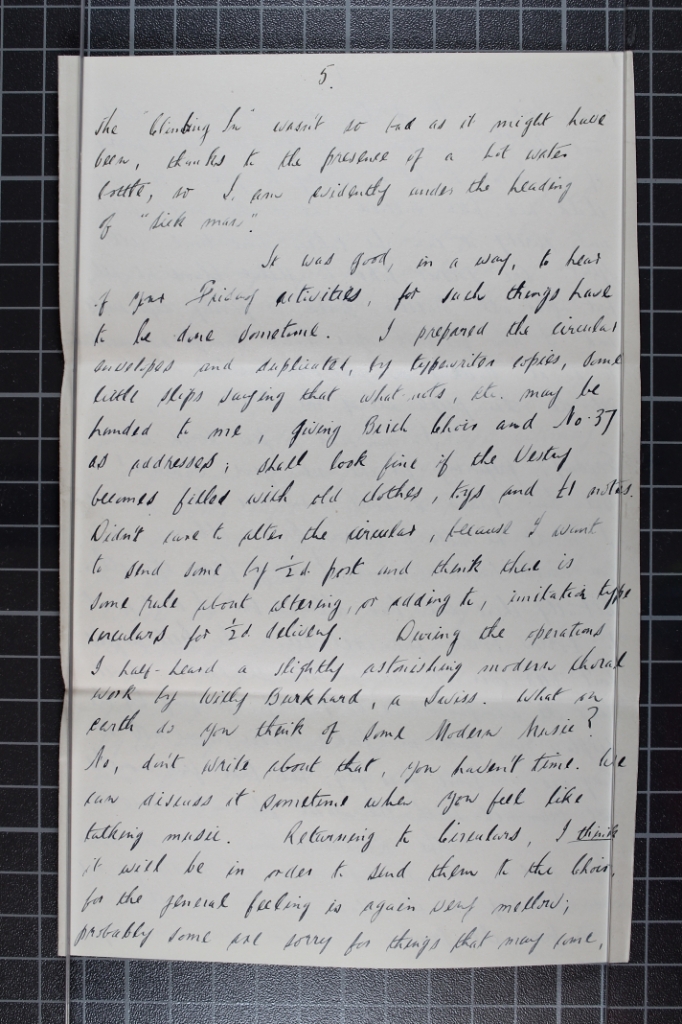 5.
The "Climbing In" wasn't so bad as it might have
been, thanks to the presence of a hot water
bottle, so I am evidently under the heading
of "sick man".
It was good, in a way, to hear
of your Friday activities, for such things have
to be done sometime. I prepared the circular
envelopes and duplicated, by typewriter copies, some
little slips saying that what-nots, etc. may be
handed to me, giving Choir and No. 37
as addresses; shall look fine if the Vestry
becomes filled with old clothes, toys and £1 notes.
Didn't care to alter the circular, because I want
to send some by ½d. post and think there is
some rule about altering, or adding to, imitation type
circulars for ½d. delivery. During the operations
I half-heard a slightly astonishing modern choral
work by Willy Burkhard, a Swiss. What on
earth do you think of some Modern Music?
No, don't write about that, you haven't time. We
can discuss it sometime when you feel like
talking music. Returning to Circulars, I think
it will be in order to send them to the Choir,
for the general feeling is again very mellow;
probably some are sorry for things that may come,